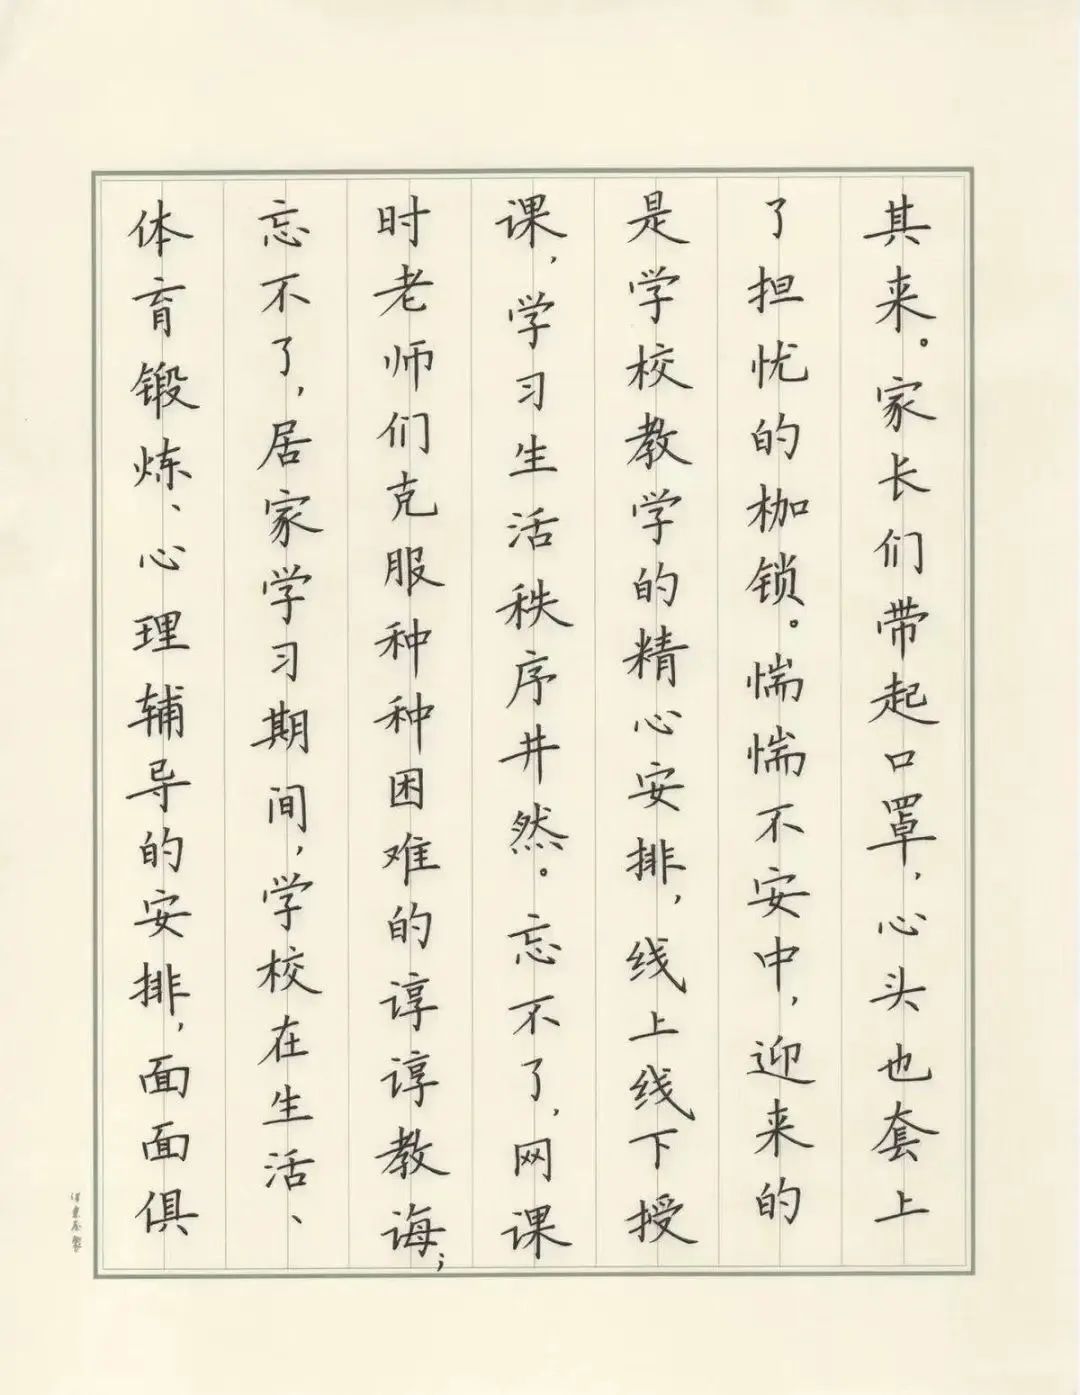 其来。家长们带起口罩，心头也套上
了担忧的枷锁。惴惴不安中，迎来的
是学校教学的精心安排，线上线下授
课，学习生活秩序井然。忘不了，网课
时老师们克服种种困难的谆谆教诲；
忘不了，居家学习期间，学校在生活、
体育锻炼、心理辅导的安排，面面俱